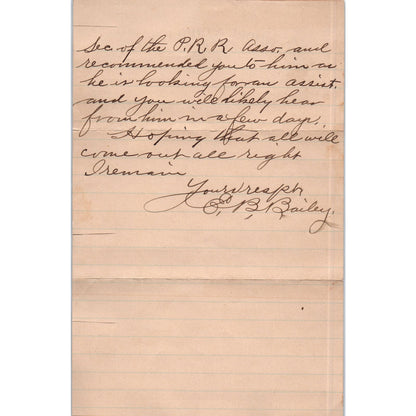 Sec of the P.R.R Asso. and
recommended you to him as
he is looking for an assist.
and you will likely hear
from him in a few days.
Hoping that all will
come out all right
I remain
Yours respt
E. B. Bailey.